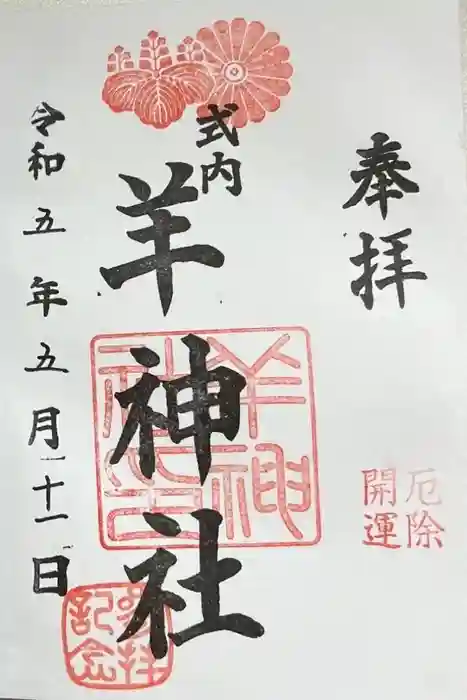 奉拝
厄除
開運
式内
羊神社
羊神社
参拝
記念
令和五年五月十一日